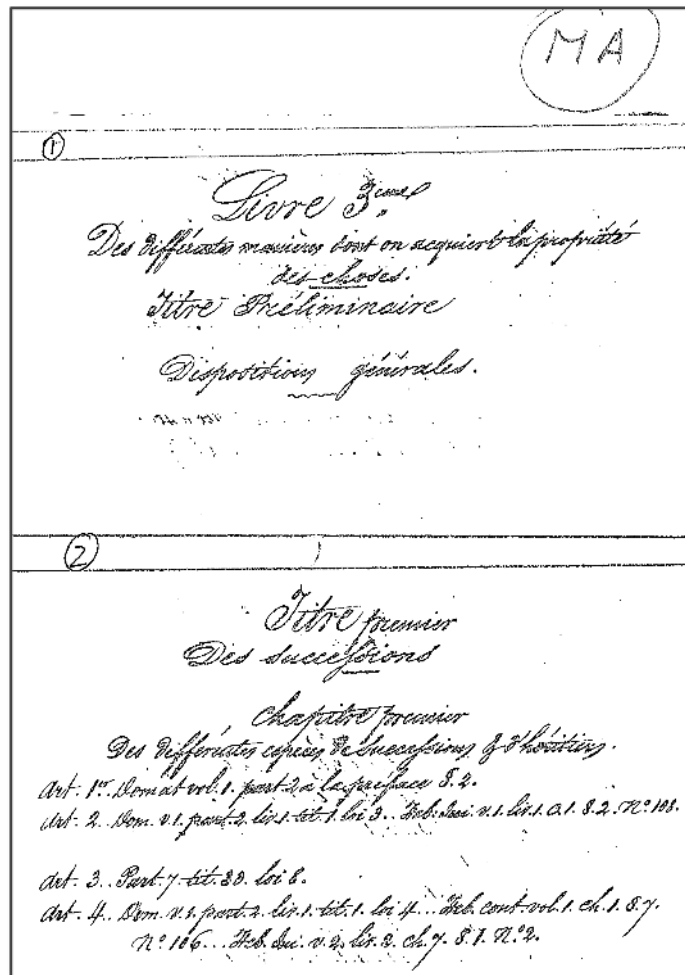 MA
1
Livre 3eme
Des différentes manières dont on acquiert la propriété
des choses.
Titre Préliminaire
Dispositions générales.
2
Titre premier
Des successions
Chapitre premier
Des différentes espèces de successions & d'héritiers.
Art. 1er. Domat vol. 1. part 2 à la préface §. 2.
Art. 2. Dom. v. 1. part. 2. liv. 1. tit. 1. loi 3.. Feb. v. 1. liv. 1. §. 2. N° 108.
Art. 3.. Part. 7. tit. 33. loi 8.
Art. 4.. Dom. v. 1. part. 2. liv. 1. tit. 1. loi 4... Feb. cont. vol. 1. ch. 1. §. 7.
N° 106... Feb. v. 2. liv. 2. ch. 7. §. 1. N° 2.